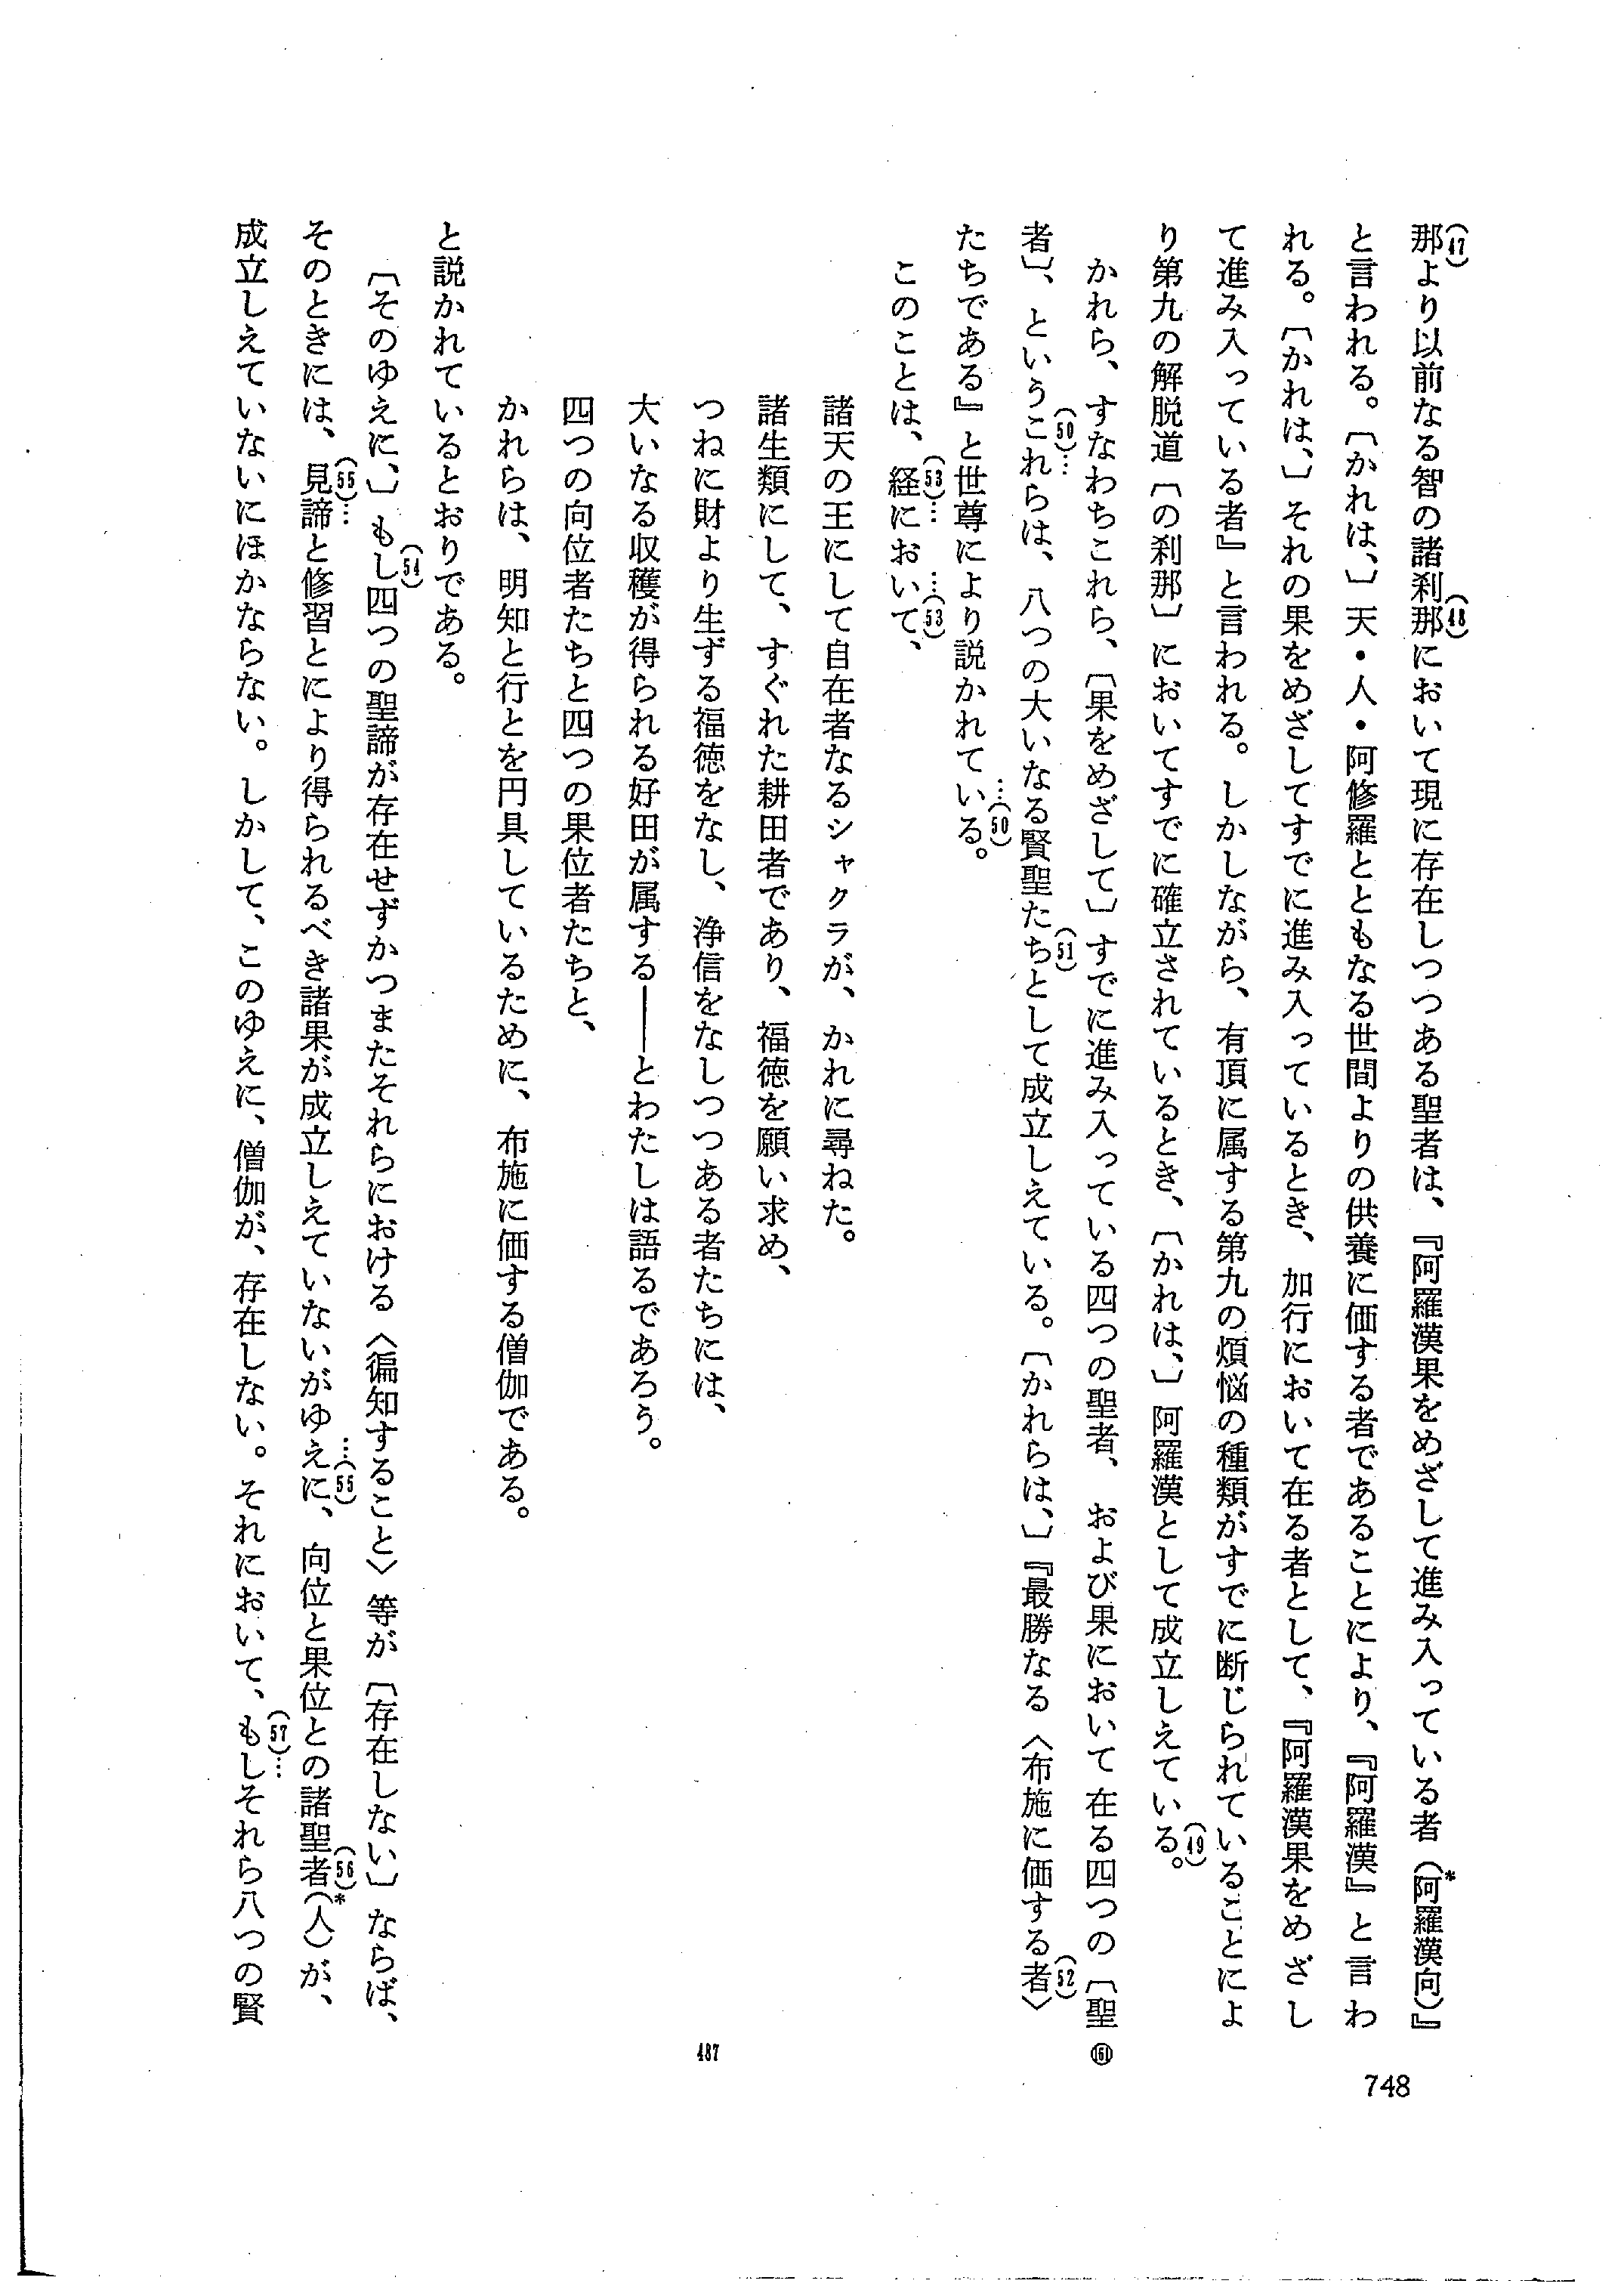 那(47)より以前なる智の諸刹那(48)において現に存在しつつある聖者は、『阿羅漢果をめざして進み入っている者（阿*羅漢向）』
と言われる。〔かれは、〕天・人・阿修羅とともなる世間よりの供養に価する者であることにより、『阿羅漢』と言わ
れる。〔かれは、〕それの果をめざしてすでに進み入っているとき、加行において在る者として、『阿羅漢果をめざし
て進み入っている者』と言われる。しかしながら、有頂に属する第九の煩悩の種類がすでに断じられていることによ
り第九の解脱道〔の刹那〕においてすでに確立されているとき、〔かれは、〕阿羅漢として成立しえている(49)。
かれら、すなわちこれら、〔果をめざして〕すでに進み入っている四つの聖者、および果において在る四つの〔聖
者〕、というこ(50)…れらは、八つの大いなる賢聖たち(51)として成立しえている。〔かれらは、〕『最勝なる〈布施に価する者(52)〉
たちである』と世尊により説かれている…(50)。
このことは、経(53)…において…(53)、
諸天の王にして自在者なるシャクラが、かれに尋ねた。
諸生類にして、すぐれた耕田者であり、福徳を願い求め、
つねに財より生ずる福徳をなし、浄信をなしつつある者たちには、
大いなる収穫が得られる好田が属する――とわたしは語るであろう。
四つの向位者たちと四つの果位者たちと、
かれらは、明知と行とを円具しているために、布施に価する僧伽である。
と説かれているとおりである。
〔そのゆえに、〕もし(54)四つの聖諦が存在せずかつまたそれらにおける〈徧知すること〉等が〔存在しない〕ならば、
そのときには、見(55)…諦と修習とにより得られるべき諸果が成立しえていないがゆえに…(55)、向位と果位との諸聖者(56)（人*）が、
成立しえていないにほかならない。しかして、このゆえに、僧伽が、存在しない。それにおいて、もし(57)…それら八つの賢
487
161
748